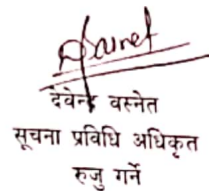 देवेन्द्र वस्नेत
सूचना प्रविधि अधिकृत
रुजु गर्ने